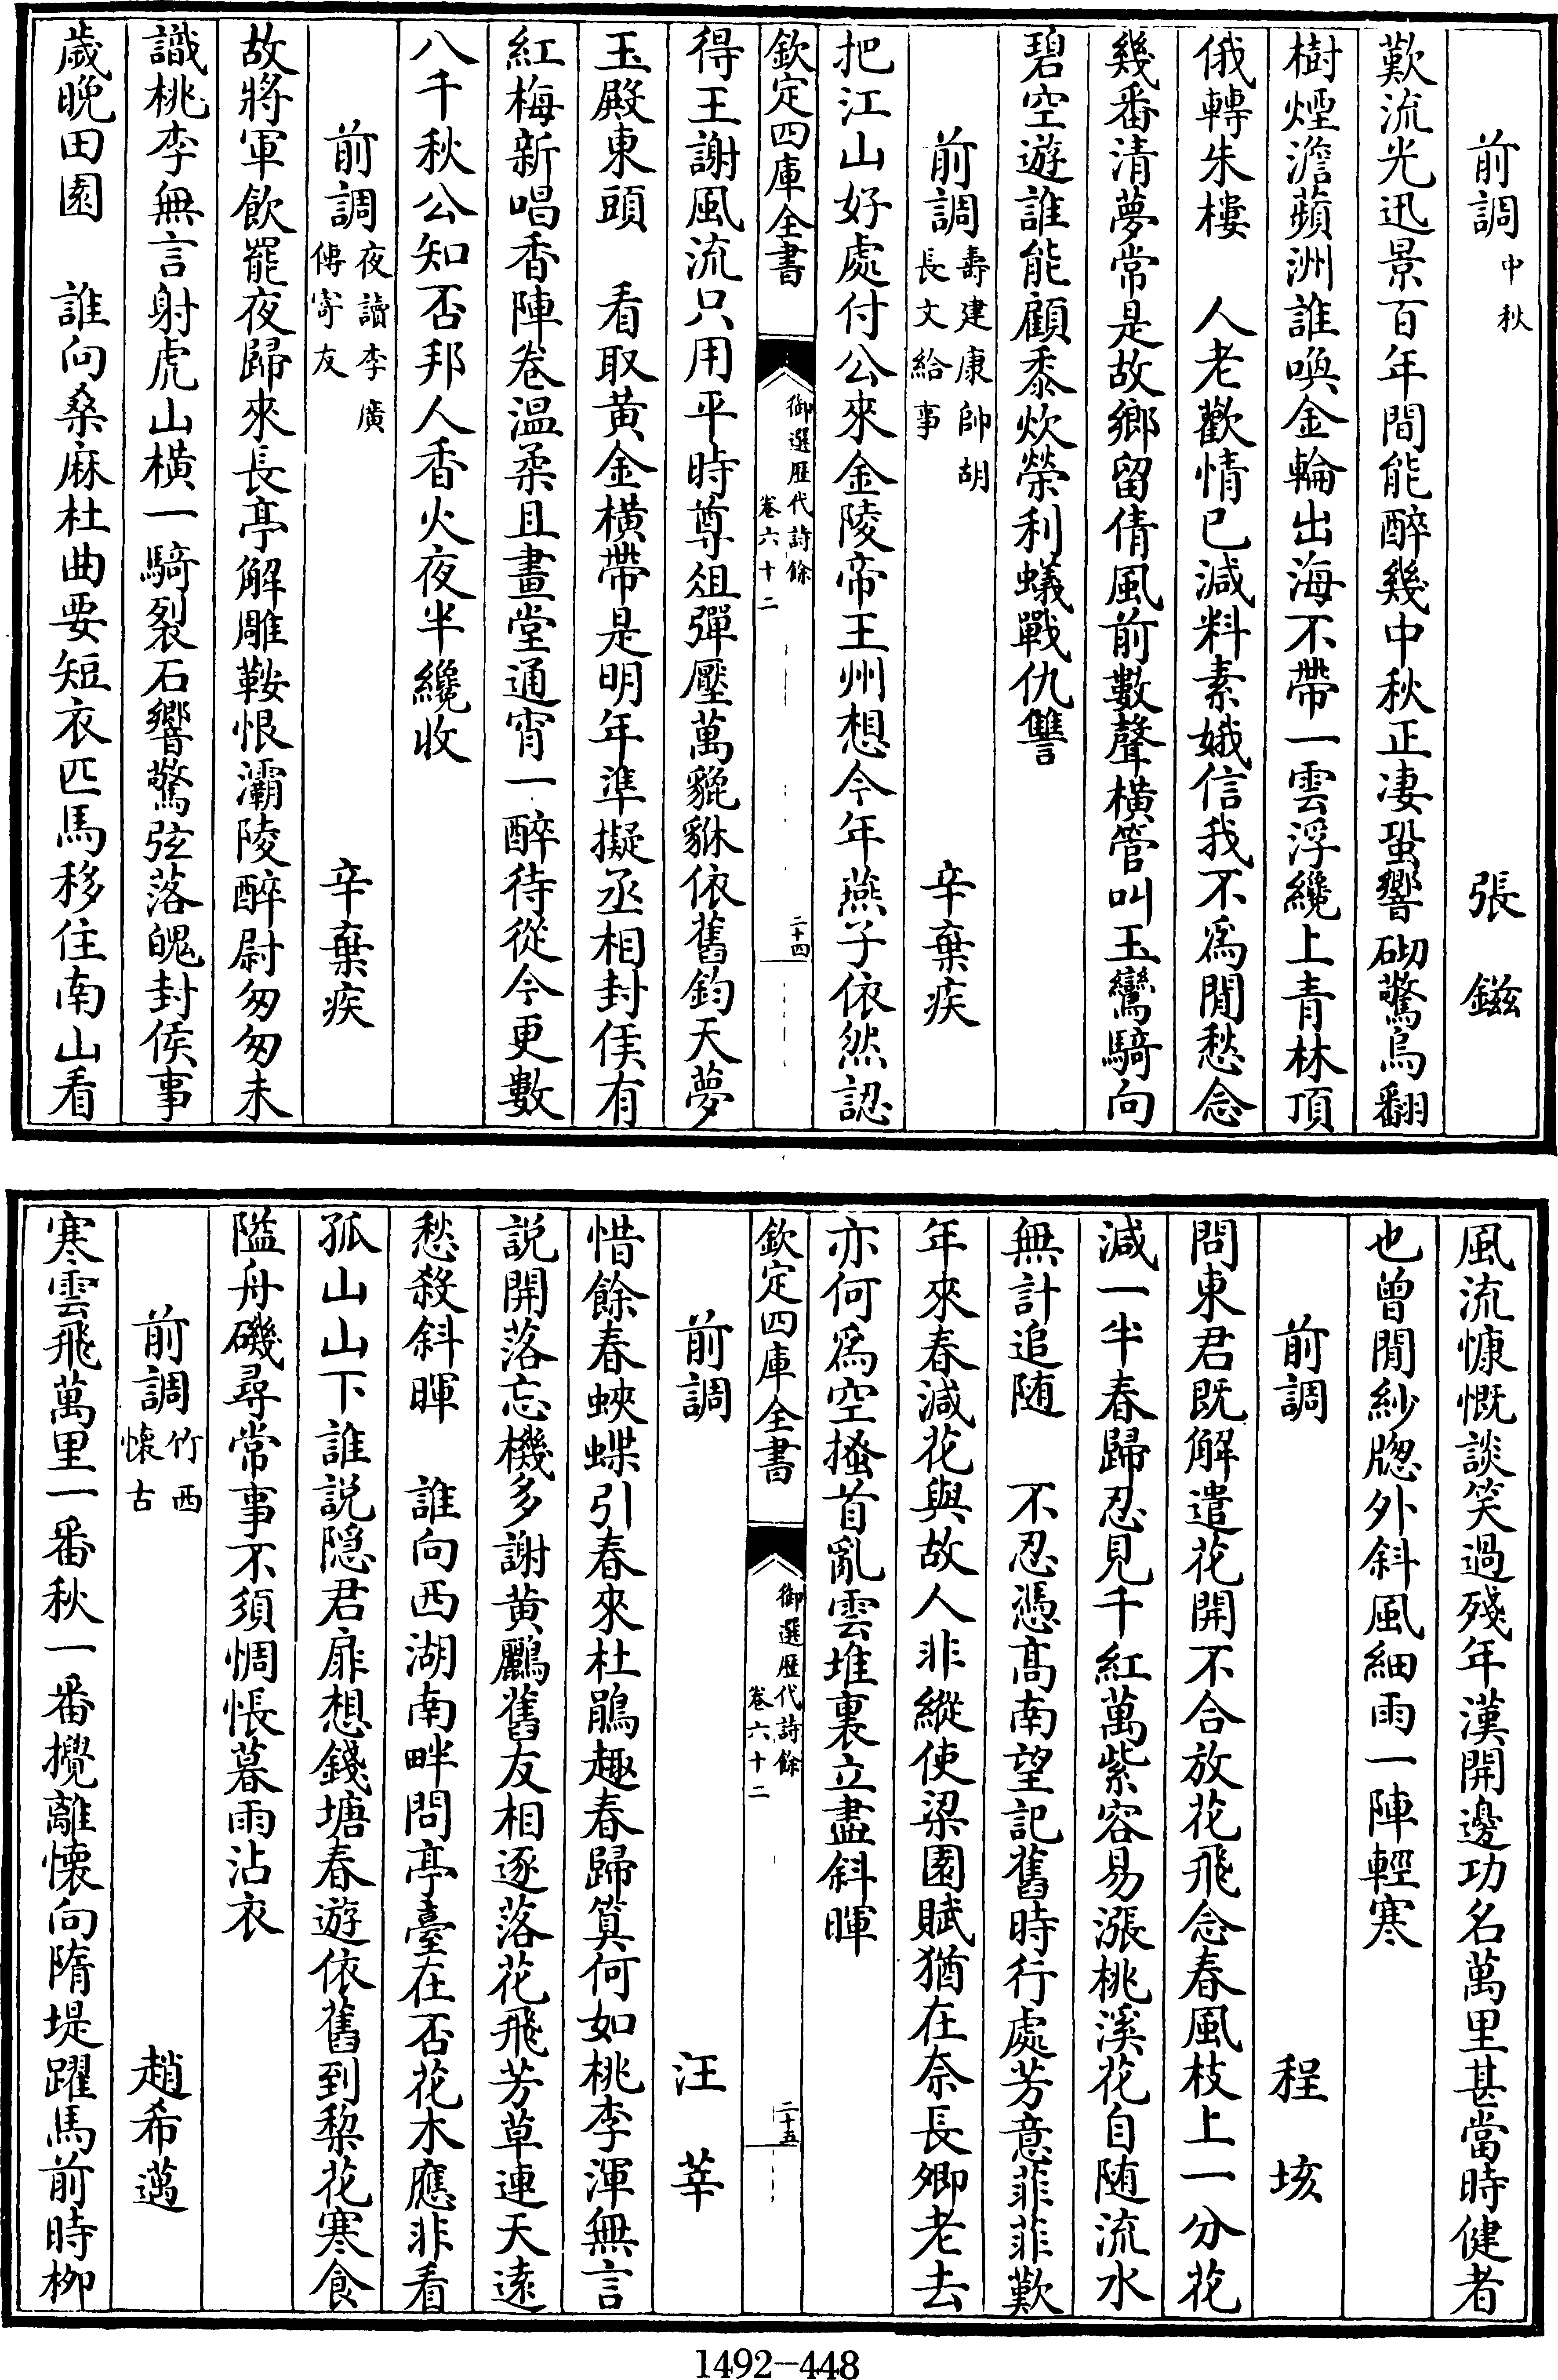 前調中秋　張鎡
歎流光迅景百年間能醉幾中秋正凄蛩響砌驚烏翻
樹煙澹蘋洲誰喚金輪出海不帶一雲浮纔上青林頂
俄轉朱樓　人老歡情已減料素娥信我不爲閒愁念
幾番清夢常是故鄉留倩風前數聲橫管叫玉鸞騎向
碧空遊誰能顧黍炊榮利蟻戰仇讐
前調壽建康帥胡長文給事　辛棄疾
把江山好處付公來金陵帝王州想今年燕子依然認
欽定四庫全書　御選歷代詩餘卷六十二　二十四
得王謝風流只用平時尊俎彈壓萬貔貅依舊鈞天夢
玉殿東頭　看取黄金橫帶是明年準擬丞相封侯有
紅梅新唱香陣卷温柔且畫堂通宵一醉待從今更數
八千秋公知否邦人香火夜半纔收
前調夜讀李廣傳寄友　辛棄疾
故將軍飲罷夜歸來長亭解雕鞍恨灞陵醉尉匆匆未
識桃李無言射虎山橫一騎裂石響驚弦落魄封侯事
歲晚田園　誰向桑麻杜曲要短衣匹馬移住南山看
風流慷慨談笑過殘年漢開邊功名萬里甚當時健者
也曾閒紗牎外斜風細雨一陣輕寒
前調　程垓
問東君既解遣花開不合放花飛念春風枝上一分花
減一半春歸忍見千紅萬紫容易漲桃溪花自随流水
無計追随　不忍憑高南望記舊時行處芳意菲菲歎
年來春減花與故人非縱使梁園賦猶在奈長卿老去
亦何爲空搔首亂雲堆裏立盡斜暉
欽定四庫全書　御選歷代詩餘卷六十二　二十五
前調　汪莘
惜餘春蛺蝶引春來杜鵑趣春歸算何如桃李渾無言
説開落忘機多謝黄鸝舊友相逐落花飛芳草連天遠
愁殺斜暉　誰向西湖南畔問亭臺在否花木應非看
孤山山下誰説隠君扉想錢塘春遊依舊到棃花寒食
隘舟磯尋常事不須惆悵暮雨沾衣
前調竹西懷古　趙希邁
寒雲飛萬里一番秋一番攪離懷向隋堤躍馬前時柳
1492—448